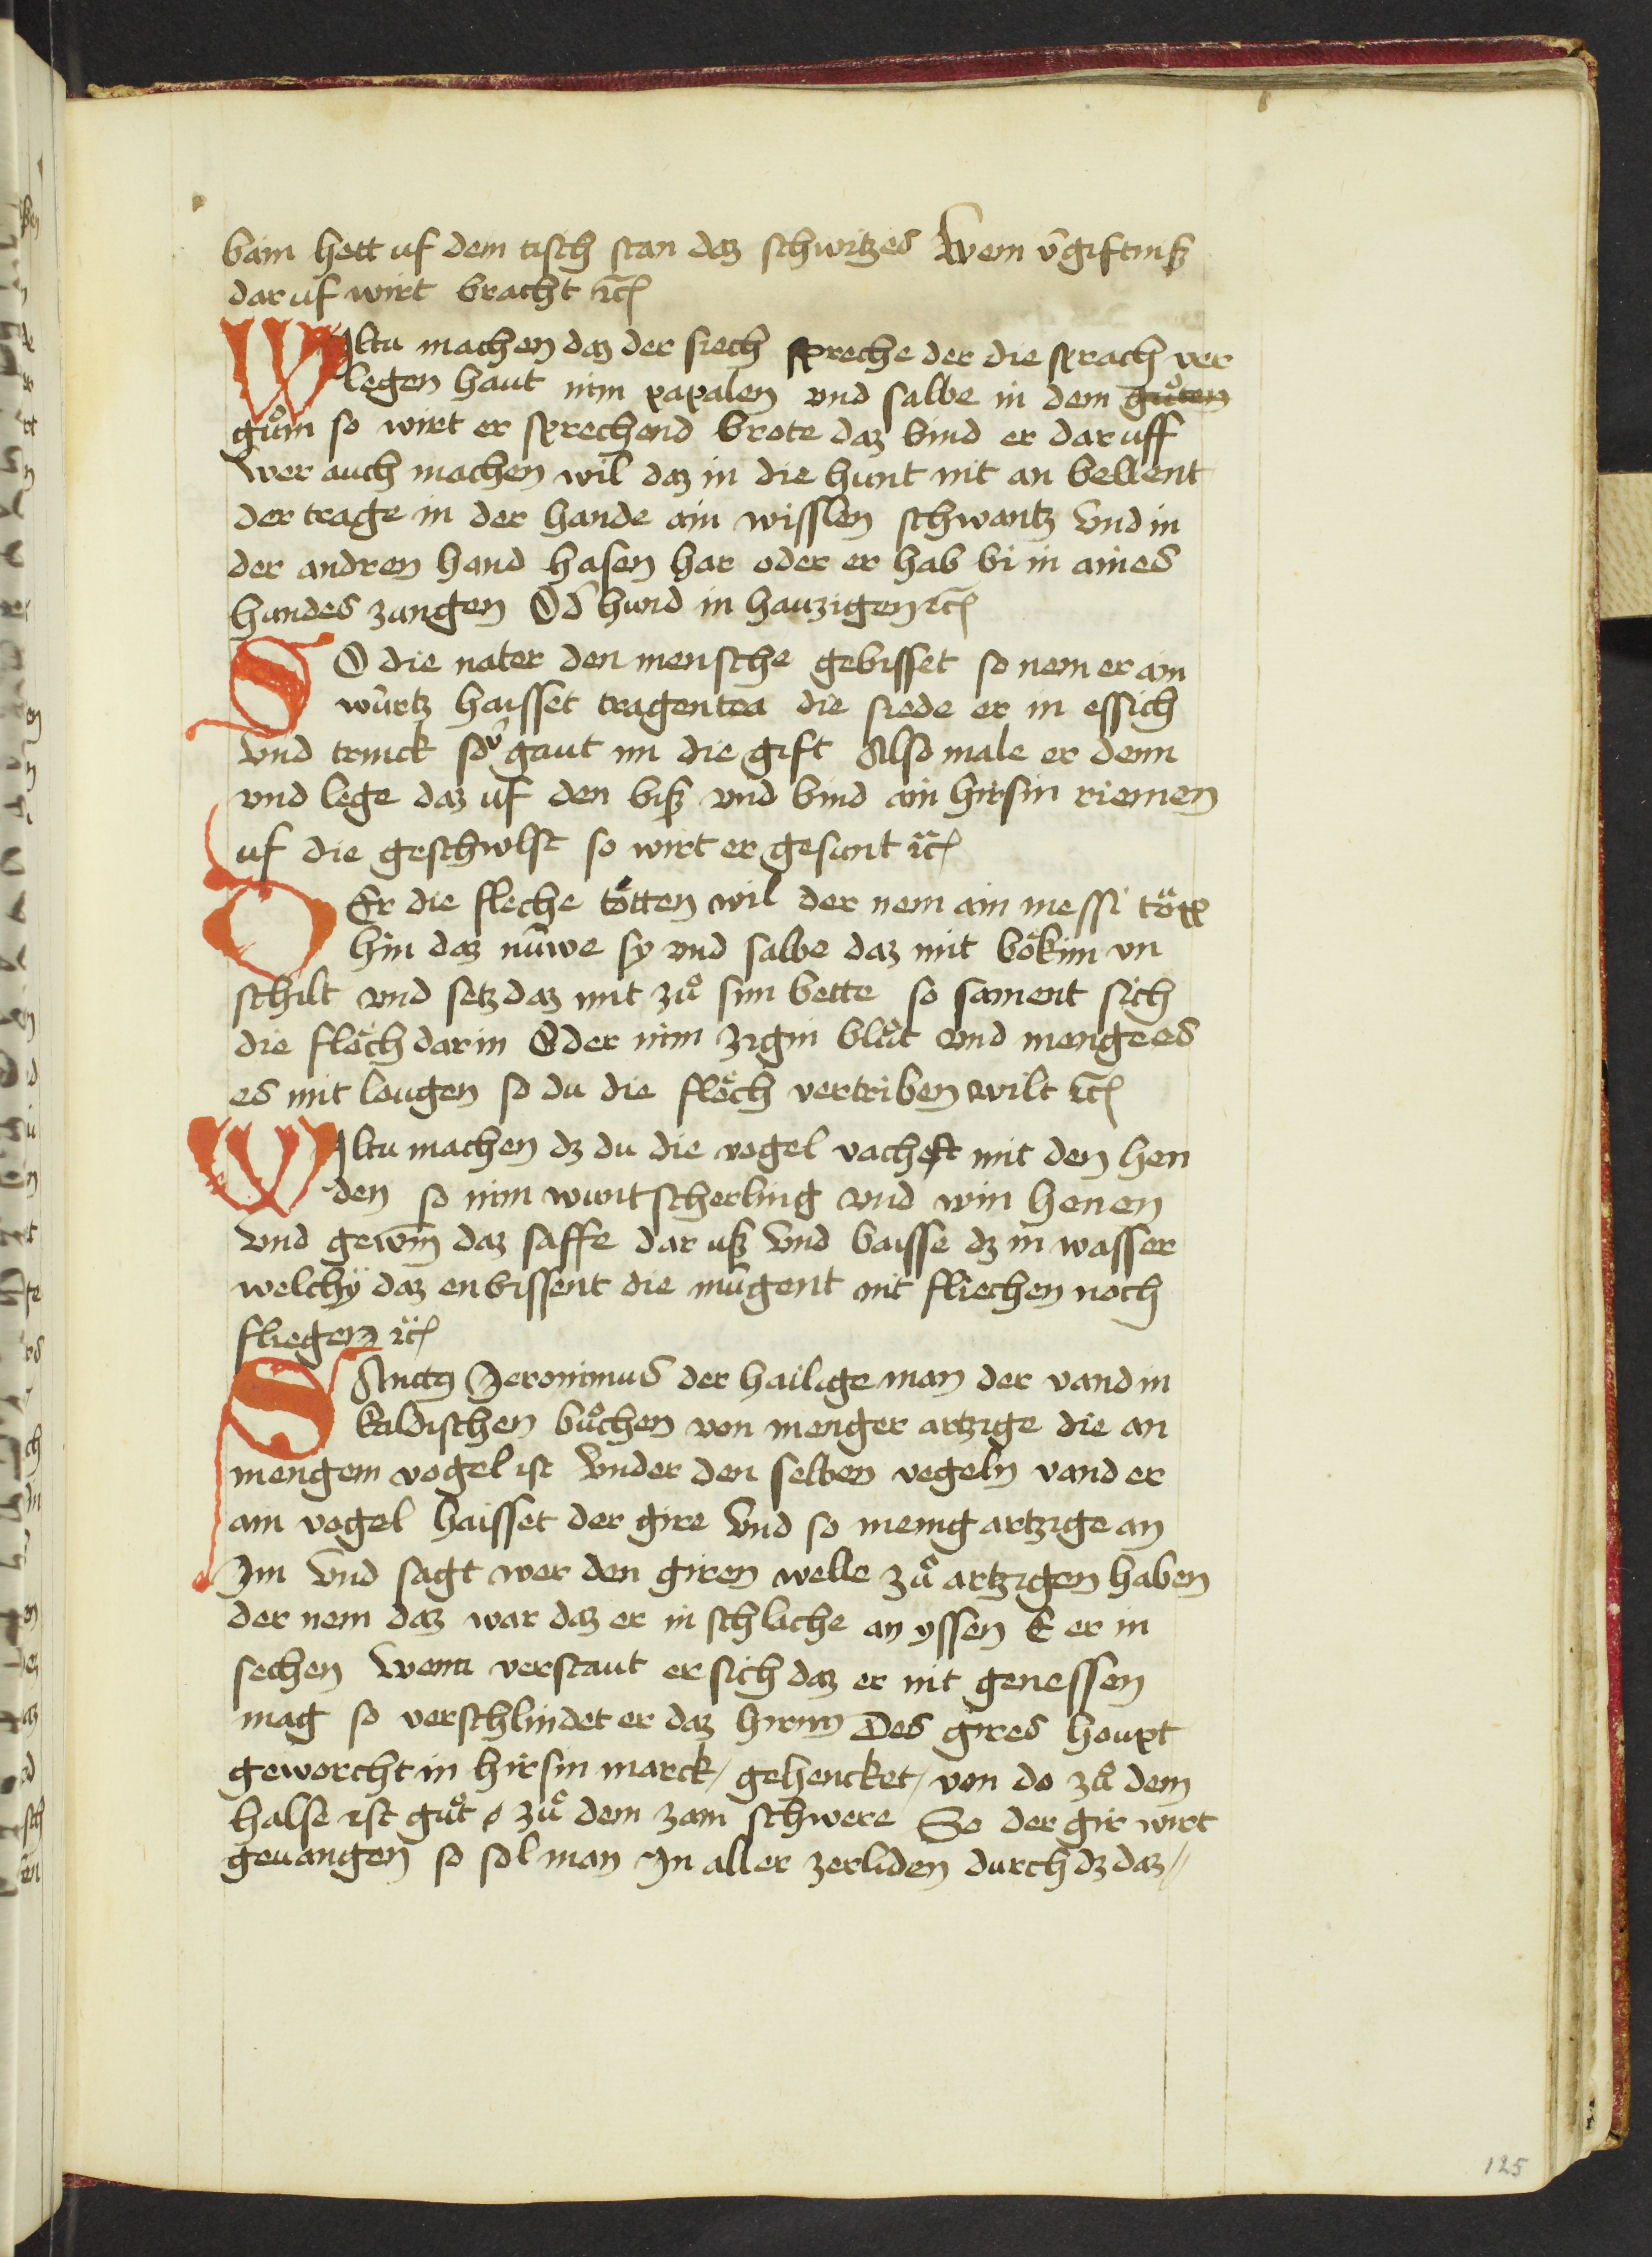 bain hett uf dem tisch stan daz schwitzes Wem v̄giftniß
dar uf wirt bracht ꝛc̄
Wiltu machen daz der siech spreche der die sprach ver
legen haut nim papalen vnd salbe in dem guͦten
guͦm so wirt er sprechend brote daz bind er dar uff
wer auch machen wil daz in die hunt nit an bellent
der trage in der hande ain wisslen schwantz vnd in
der andren hand hasen har oder er hab bi in aines
hundes zungen Od̄ hund in hauzigen ꝛc̄
SO die nater den mensche gebisset so nem er ain
wúrtz haisset tragentea die siede er in essich
vnd trinck so v̄gaut im die gift Also male er denn
vnd lege daz uf den biß vnd bind ain hirsin riemen
uf die geschwlst so wirt er gesunt ꝛc̄
DEr die fleche tötten wil der nem ain messi töpp
hin daz núwe sy vnd salbe daz mit bökim vn
schilt vnd setz daz mit zuͦ sim bette so sament sich
die flöch dar in Oder nim zigin bluͦt vnd menge es
es mit lougen so du die flöch vertriben wilt ꝛc̄
Wiltu machen dz du die vogel vachest mit den hen
den so nim wuntscherling vnd win henen
vnd gewin̄ daz saffe dar uß vnd baisse dz in wasser
welchÿ daz enbissent die múgent nit fliechen noch
fliegen ꝛc̄
SAnctꝰ Jeronimus der hailige man der vand in
kaldischen buͦchen von menger artzige die an
mengem vogel ist vnder den selben vogeln vand er
ain vogel haisset der gire vnd so menig artzige an
Im vnd sagt wer den giren welle zuͦ artzigen haben
der nem daz war daz er in schlache an yssen E er in
sechen wenn verstaut er sich daz er nit genessen
mag so verschlindet er daz hirnn Des gires houpt
geworcht in hirsin marck / gehencket / von do zuͦ dem
halse ist guͦt zuͦ dem zam schwere So der gir wirt
gevangen so sol man In aller zerliden durch dz daz //
125